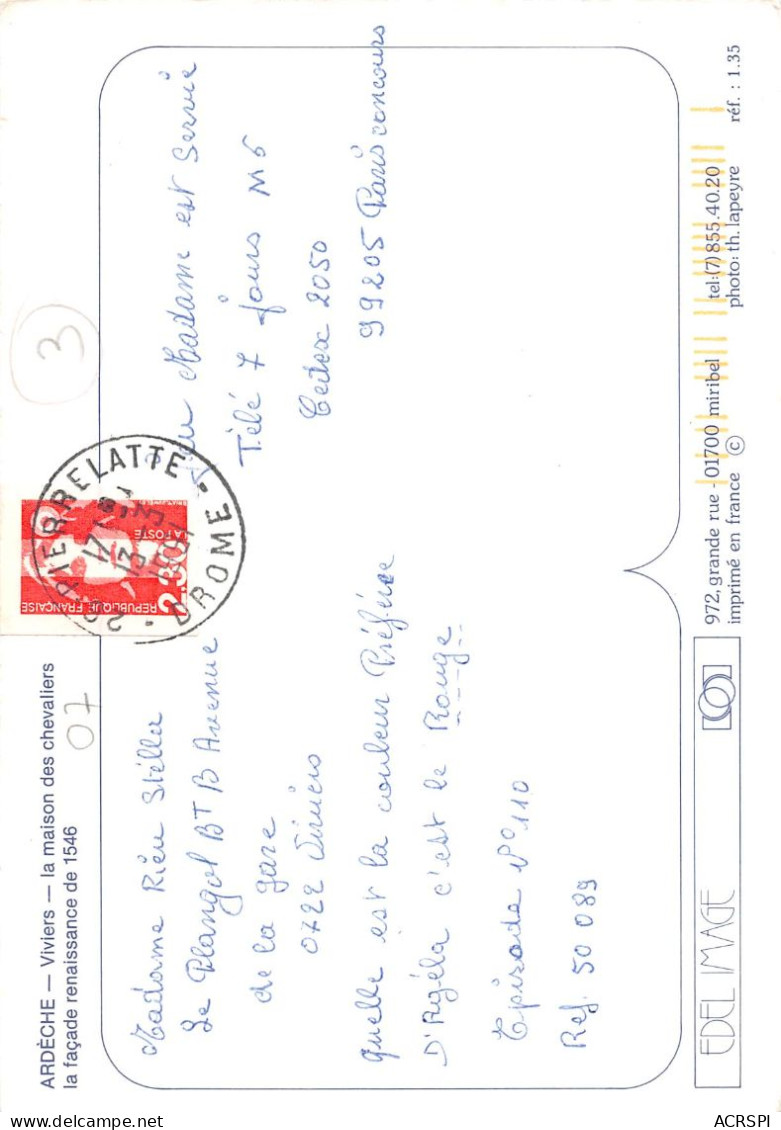 ARDÈCHE — Viviers — la maison des chevaliers
la façade renaissance de 1546
07
3
26 PIERRELATTE
17 H
13-3
1991
DROME
RÉPUBLIQUE FRANÇAISE
LA POSTE
2,30
Madame Rieu Stélla
Le Plangol BT B Avenue
de la gare
0722 Viviers
quelle est la couleur Préférée
D'Angéla c'est le Rouge
Episode N° 110
Ref. 50 089
Jeu Madame est Servie
Télé 7 Jours M6
Cedex 2050
99205 Paris concours
EDEL IMAGE
972, grande rue - 01700 miribel tel: (7) 855.40.20
imprimé en france © photo: th. lapeyre réf. : 1.35
ACRSPI